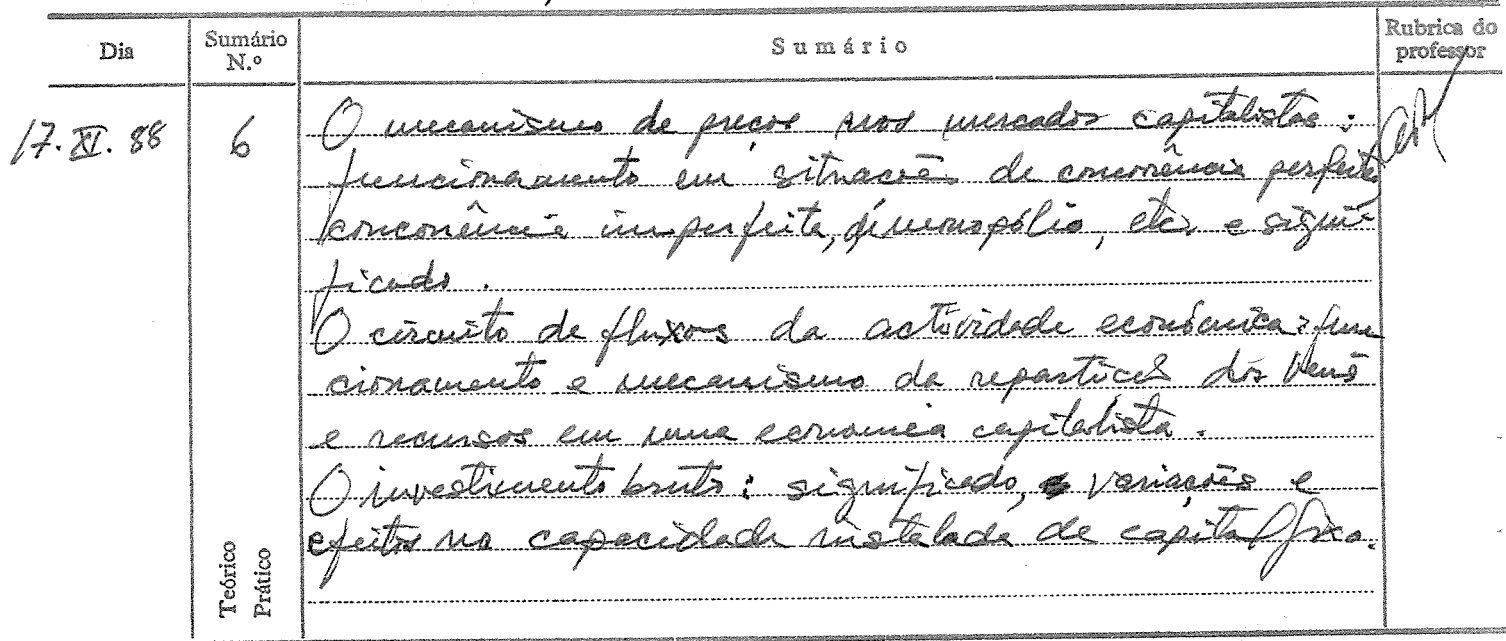 Dia Sumário N.º Sumário Rubrica do professor
17.XI.88 6 O mecanismo de preços nos mercados capitalistas:
funcionamento em situações de concorrência perfeita
concorrência imperfeita, monopólio, etc. e signi-
ficado.
O circuito de fluxos da actividade económica: fun
cionamento e mecanismo da repartição dos bens
e recursos em uma economia capitalista.
O investimento bruto: significado, variações e
efeitos na capacidade instalada de capital fixo.
Teórico
Prático